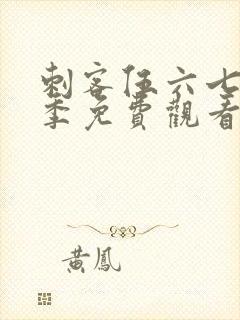 刺客伍六七
季免費觀看
黃鳳